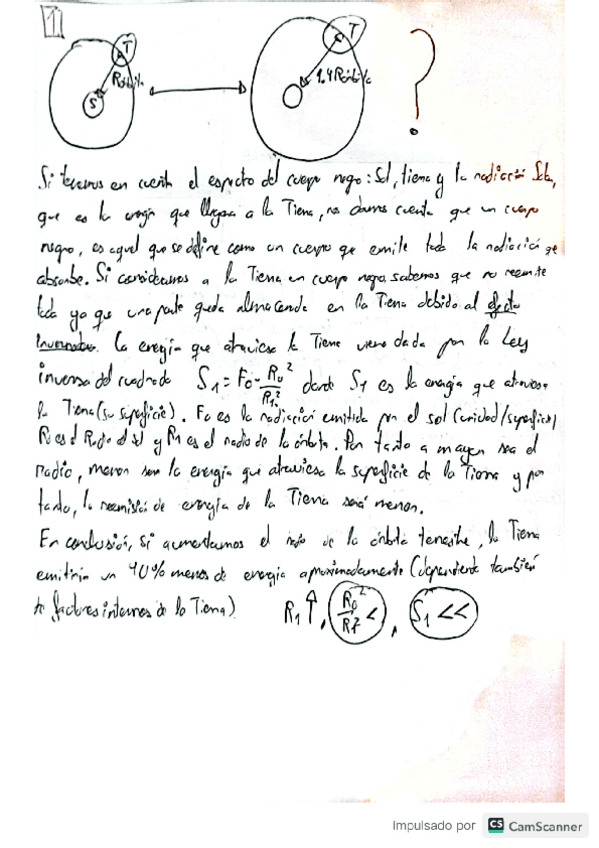 1
T
Rórbita
S
T
1.4 Rórbita
?
Si tenemos en cuenta el espectro del cuerpo negro: Sol, tierra y la radiación Solar,
que es la energía que llega a la Tierra, nos damos cuenta que un cuerpo
negro, es aquel que se define como un cuerpo que emite toda la radiación que
absorbe. Si consideramos a la Tierra un cuerpo negro, sabemos que no reemite
toda ya que una parte queda almacenada en la Tierra debido al efecto
Invernadero. La energía que atraviesa la Tierra viene dada por la Ley
inversa del cuadrado S1 = F0 · R0²/R1² donde S1 es la energía que atraviesa
la Tierra (su superficie). F0 es la radiación emitida por el sol (unidad/superficie)
R0 es el Radio del sol y R1 es el radio de la órbita. Por tanto a mayor sea el
radio, menor será la energía que atraviesa la superficie de la Tierra y por
tanto, la reemisión de energía de la Tierra será menor.
En conclusión, si aumentamos el radio de la órbita terrestre, la Tierra
emitiría un 40% menos de energía aproximadamente (dependiente también
de factores internos de la Tierra). R1 ↑, R0²/R1² <, S1 <<
Impulsado por CS CamScanner